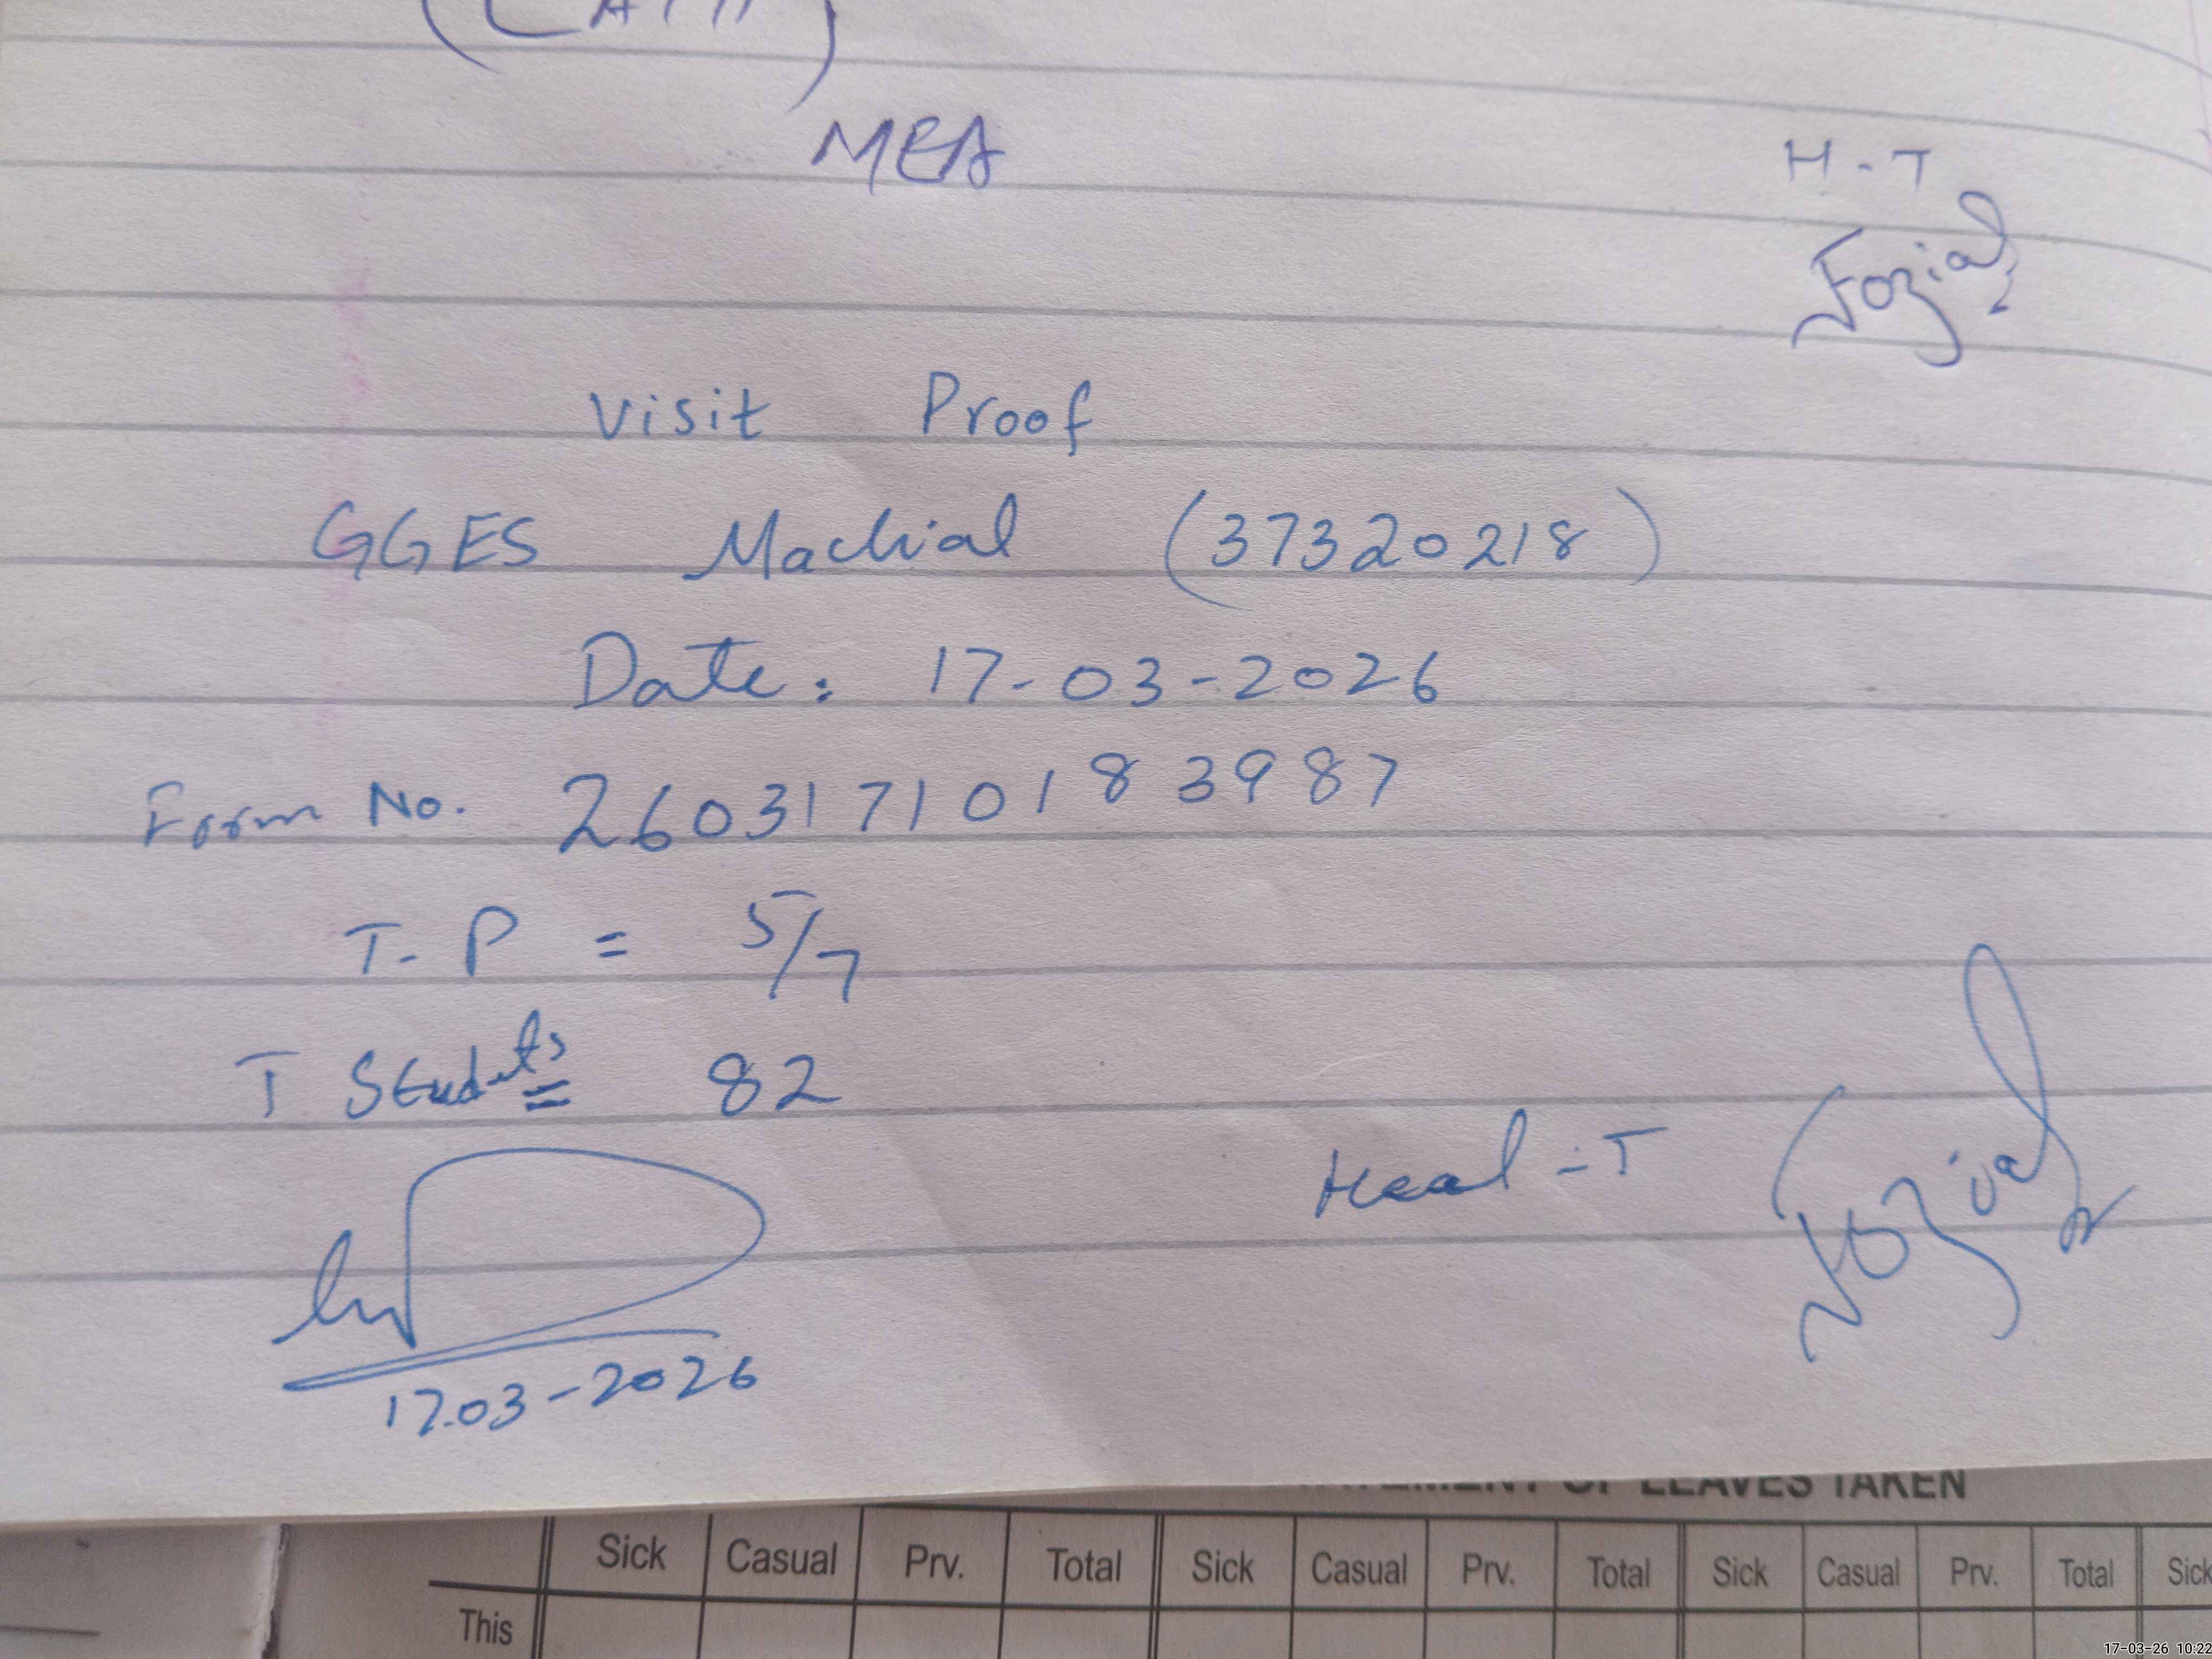 MEA
H-T
Fozia
Visit Proof
GGES Machial (37320218)
Date: 17-03-2026
Form No. 26031710183987
T-P = 5/7
T Students = 82
Head-T
Fozia
17.03-2026
STATEMENT OF LEAVES TAKEN
Sick Casual Prv. Total Sick Casual Prv. Total Sick Casual Prv. Total Sick
This
17-03-26 10:22